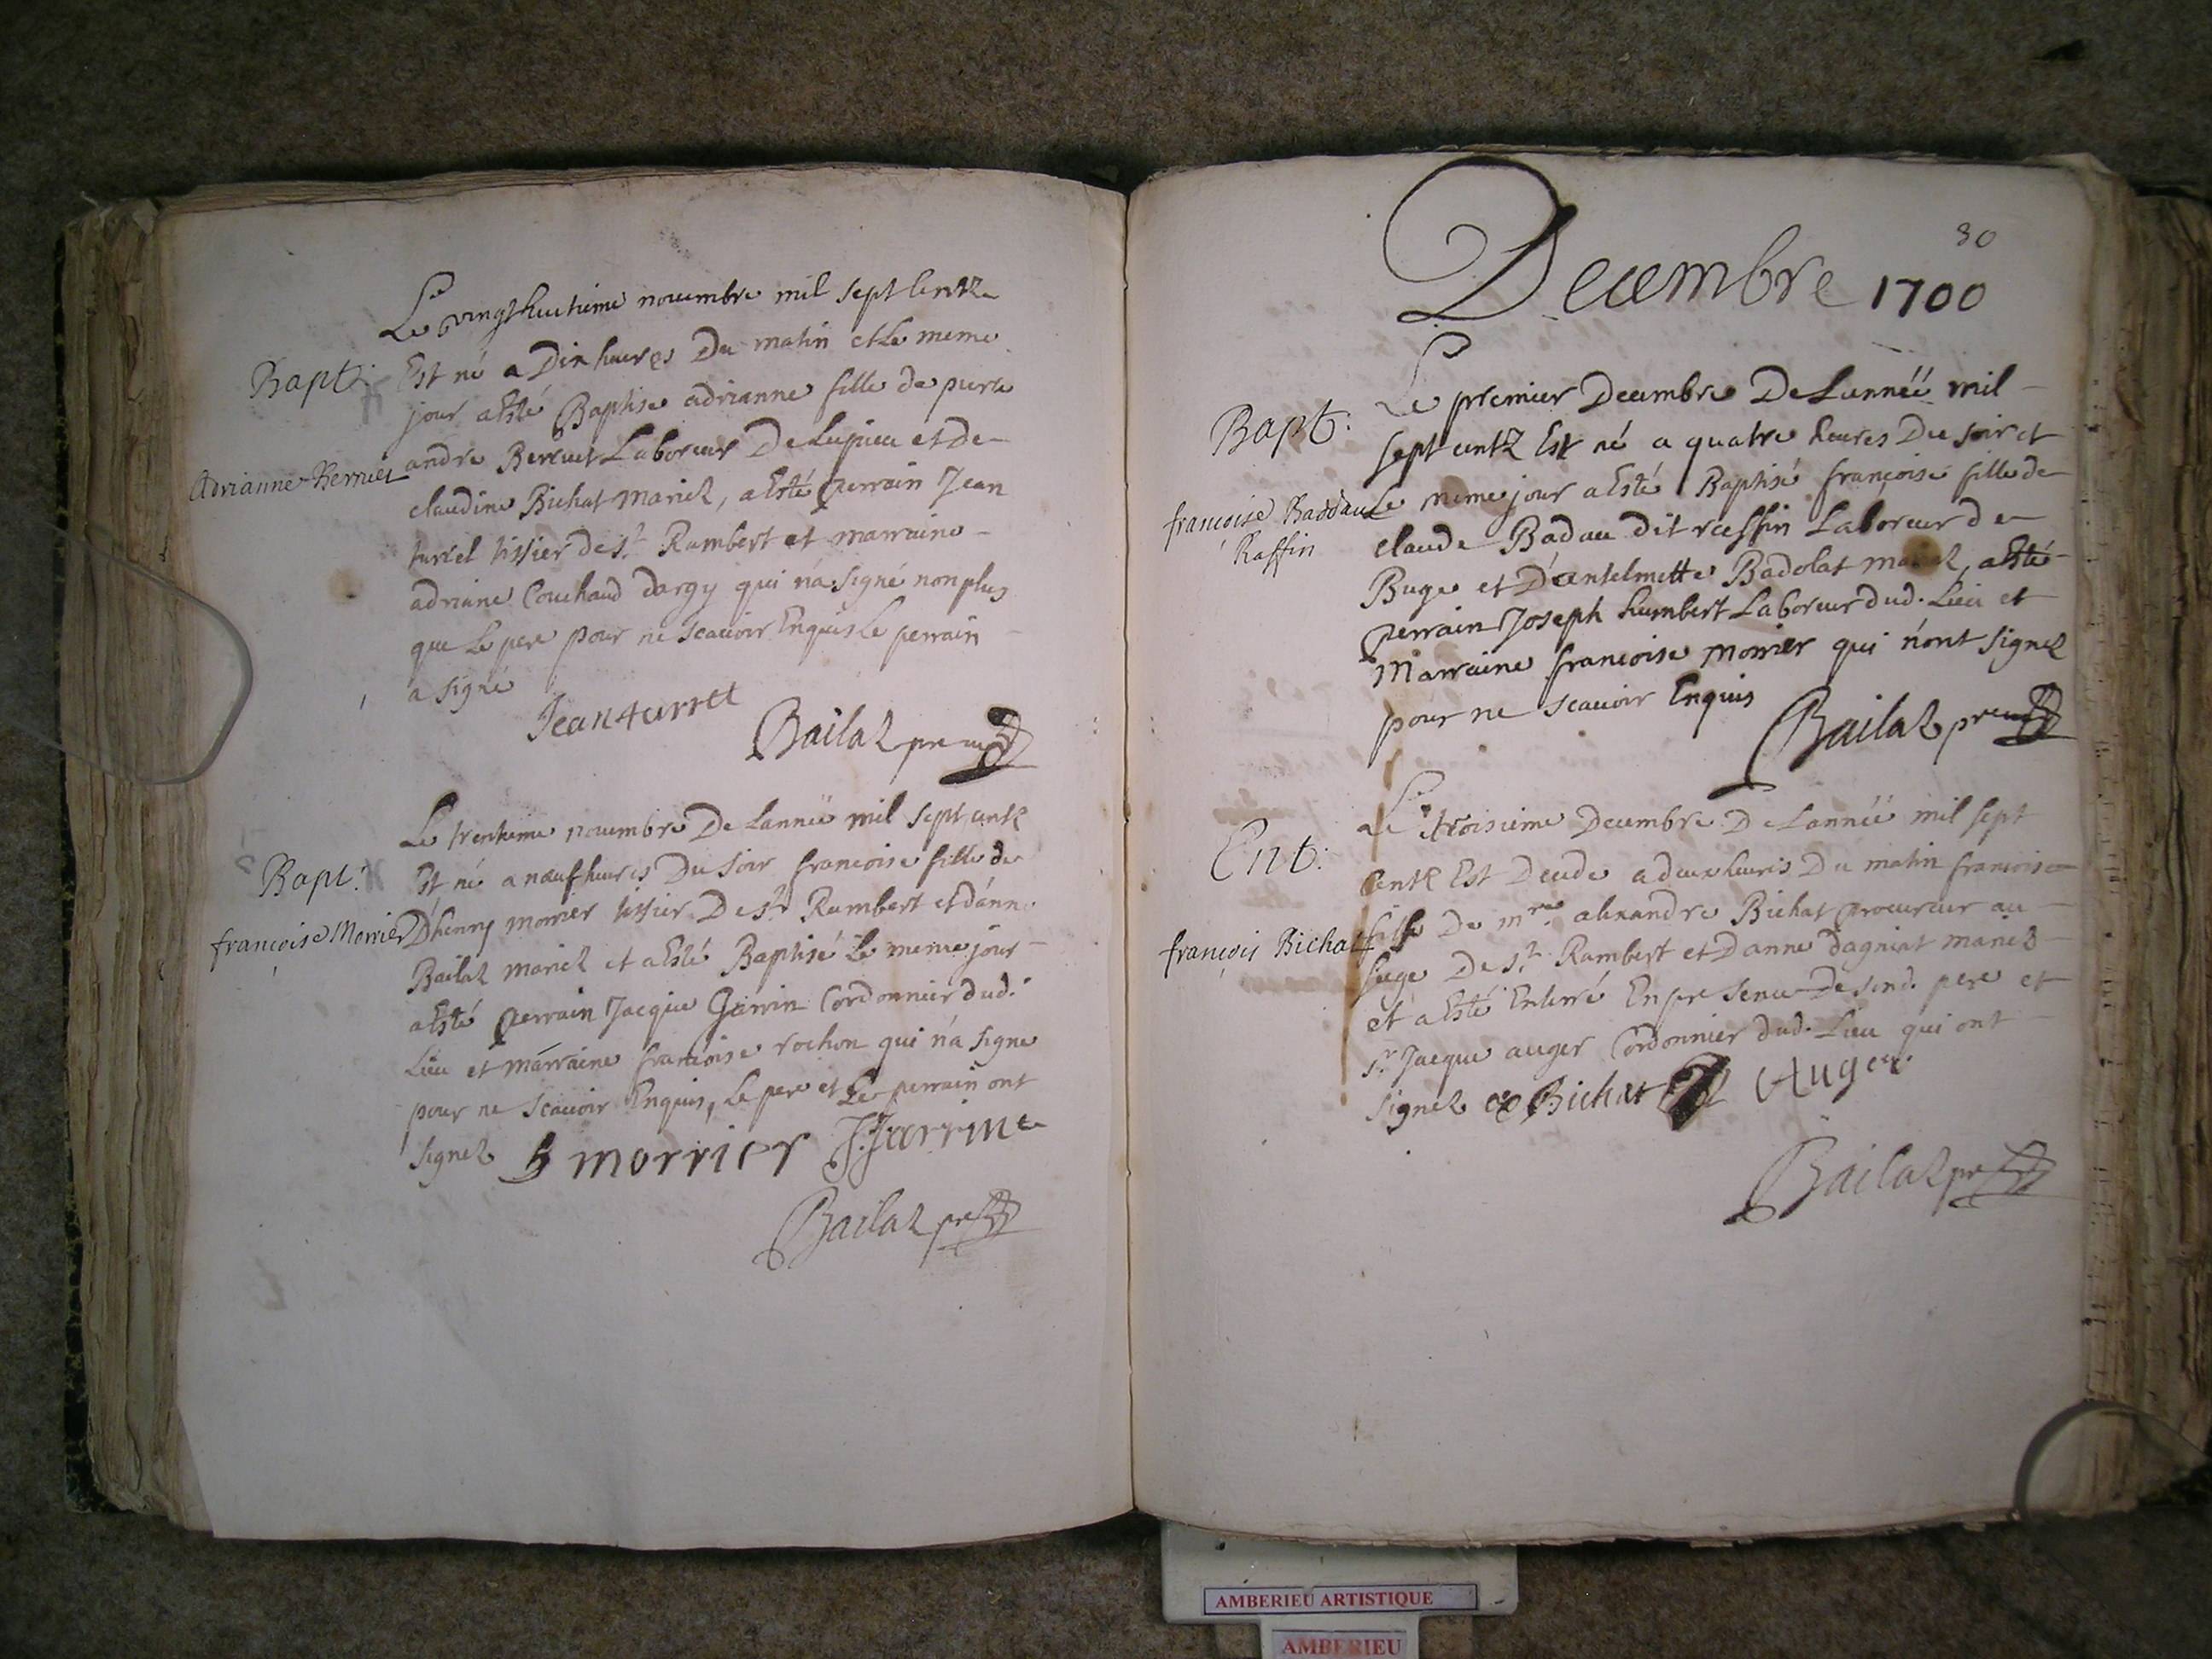 Le vingt huitieme nouembre mil sept centz
Bapt: Est né a Dix heures Du matin et Le meme
jour a Esté Baptise adrianne fille de pierre
Adrianne Berruet andre Berruet Laboreur De Lupieu et de
claudine Bichat mariez, a Esté perrain Jean
turrel tissier de st Rambert et marraine
adriane Couchaud dargy qui n'a signé non plus
que Le pere pour ne scauoir Enquis Le perrain
a signé
Jean turrel
Bailaz pre
Le trentieme nouembre De Lannéé mil sept centz
Bapt: Est né a neuf heures Du soir francoise fille de
francoise Morrier D'henry morrier tissier De st Rambert et d'anne
Bailaz mariez et a Esté Baptisé Le meme jour
a Esté perrain Jacque Garrin Cordonnier dud.
Lieu et marraine francoise rochon qui n'a signe
pour ne scauoir Enquis, Le pere et Le perrain ont
signez h morrier J. Jarrin
Bailaz pre
30
Decembre 1700
Le premier Decembre De Lannéé mil
Bapt: sept centz Est né a quatre heures Du soir et
françoise Baddau Le meme jour a Esté Baptisé françoise fille de
Raffin claude Badau dit raffin Laboreur de
Buge et D'antelmette Badolat mariez, a Esté
perrain Joseph humbert Laboreur dud. Lieu et
Marraine francoise morrier qui n'ont signez
pour ne scauoir Enquis
Bailaz pre
Le troisieme Decembre De Lannéé mil sept
Ent: Centz Est Decede a deux heures Du matin francoise
françois Bichat fille De mre alexandre Bichat procureur au
siege De st Rambert et D'anne dagniat mariez
et a Esté Enterré En presence De sond. pere et
sr Jacque auger Cordonnier dud. Lieu qui ont
signez Bichat Auger
Bailaz pre
AMBERIEU ARTISTIQUE
AMBERIEU